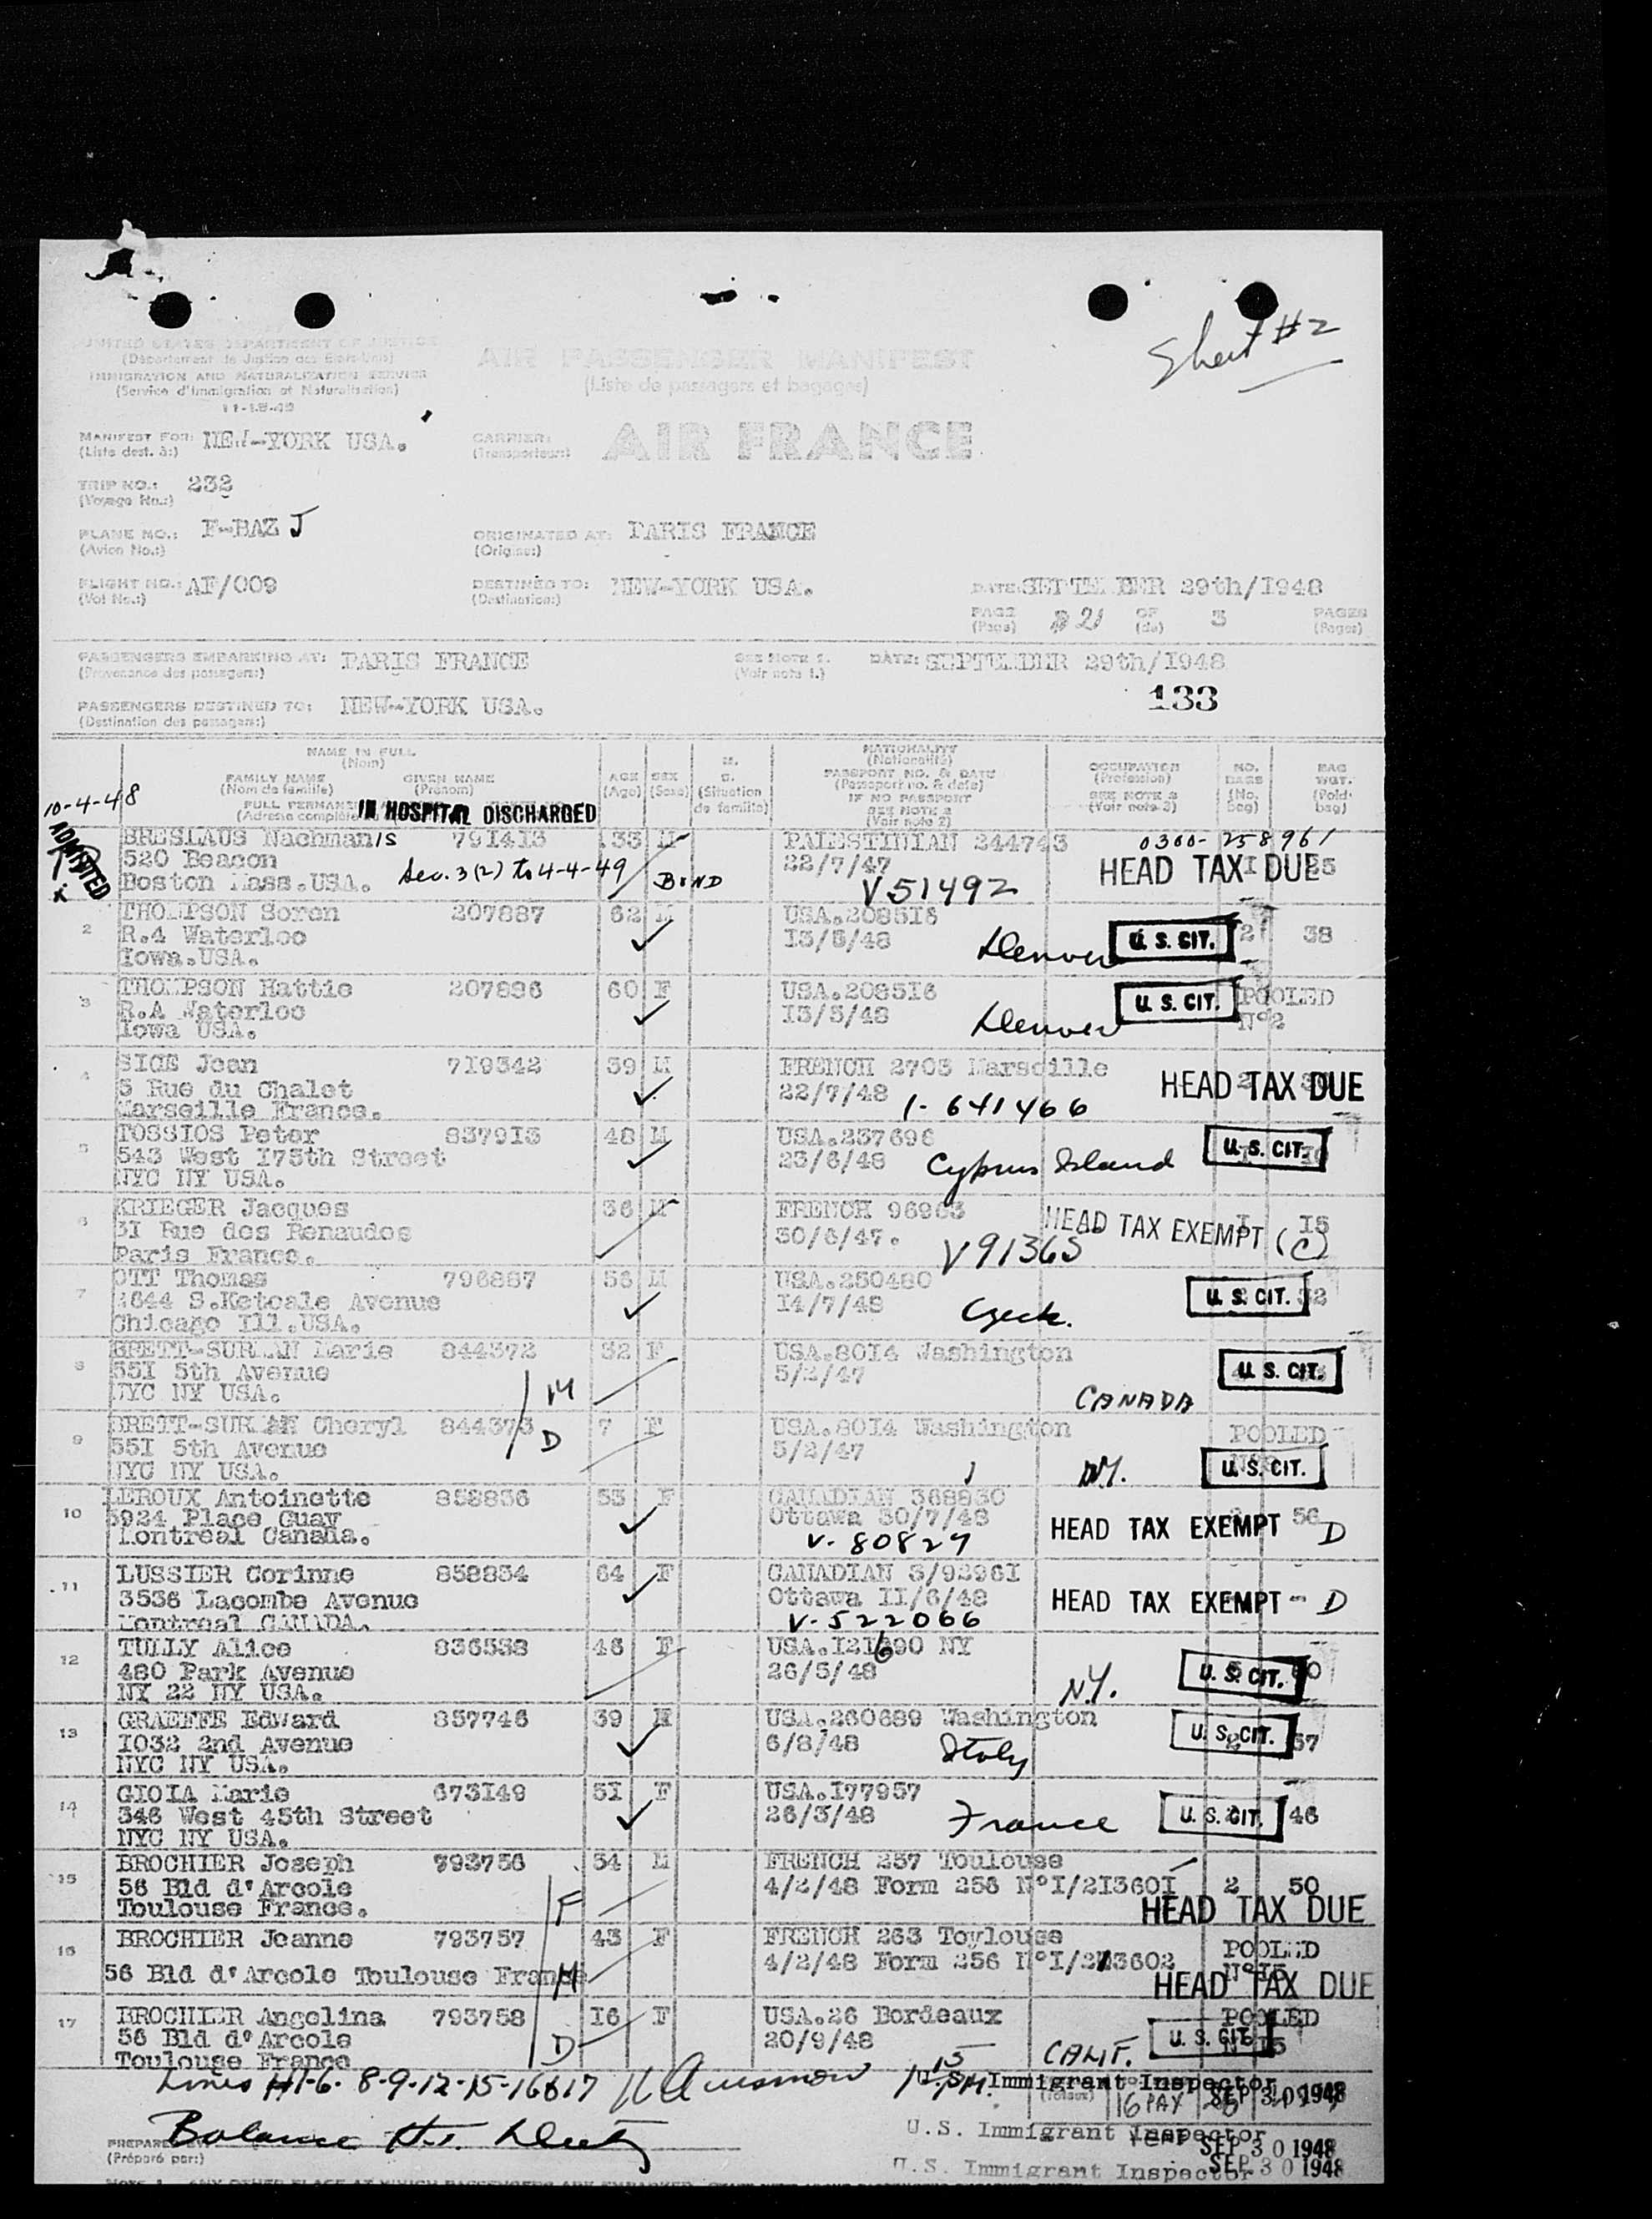 Sheet #2
UNITED STATES DEPARTMENT OF JUSTICE
(Département de Justice des Etats-Unis)
IMMIGRATION AND NATURALIZATION SERVICE
(Service d'Immigration et Naturalisation)
AIR PASSENGER MANIFEST
(Liste de passagers et bagages)
MANIFEST FOR: NEW-YORK USA.
(Liste dest. à:)
CARRIER: AIR FRANCE
(Transporteur:)
TRIP NO.: 232
(Voyage No.:)
PLANE NO.: F-BAZ J
(Avion No.:)
ORIGINATED AT: PARIS FRANCE
(Origine:)
FLIGHT NO.: AF/009
(Vol No.:)
DESTINED TO: NEW-YORK USA.
(Destination:)
DATE: SEPTEMBER 29th/1948
PAGE 21 OF 3 PAGES
(Page) (de) (Pages)
PASSENGERS EMBARKING AT: PARIS FRANCE
(Provenance des passagers:)
SEE NOTE 1.
(Voir note 1.)
DATE: SEPTEMBER 29th/1948
133
PASSENGERS DESTINED TO: NEW-YORK USA.
(Destination des passagers:)
NAME IN FULL
(Nom)
FAMILY NAME GIVEN NAME
(Nom de famille) (Prénom)
FULL PERMANENT
(Adresse complète
AGE (Age)
SEX (Sexe)
M. S. (Situation de famille)
NATIONALITY
(Nationalité)
PASSPORT NO. & DATE
(Passeport no. & date)
IF NO PASSPORT
SEE NOTE 2
(Voir note 2)
OCCUPATION
(Profession)
SEE NOTE 3
(Voir note 3)
NO. BAGS (No. bag)
BAG WGT. (Poid. bag)
10-4-48
ADMITTED
IN HOSPITAL DISCHARGED
BRESLAUS Nachman is 791413 33 M PALESTINIAN 244743 0300-258961
520 Beacon 22/7/47 HEAD TAX DUE
Boston Mass.USA. Sec. 3(2) to 4-4-49 BOND V51492
2 THOMPSON Soren 207887 62 M USA.208516
R.4 Waterloo 13/5/48 Denver U. S. CIT. 2 38
Iowa.USA.
3 THOMPSON Hattie 207896 60 F USA.208516 U. S. CIT. POOLED
R.A Waterloo 13/5/48 Denver N°2
Iowa USA.
4 SICE Jean 719342 39 M FRENCH 2703 Marseille
5 Rue du Chalet 22/7/48 HEAD TAX DUE
Marseille France. 1-641466
5 TOSSIOS Peter 837913 48 M USA.237696 U. S. CIT.
543 West 175th Street 23/6/48 Cyprus Island
NYC NY USA.
6 KRIEGER Jacques 36 M FRENCH 96963 I 15
31 Rue des Renaudes 30/6/47. HEAD TAX EXEMPT (C)
Paris France. V91365
7 OTT Thomas 796887 56 M USA.250480
2644 S.Ketcale Avenue 14/7/48 Czech. U. S. CIT. 32
Chicago Ill.USA.
8 BRETT-SURMAN Marie 844372 32 F USA.8014 Washington
551 5th Avenue 5/2/47 U. S. CIT.
NYC NY USA. M CANADA
9 BRETT-SURMAN Cheryl 844373 7 F USA.8014 Washington POOLED
551 5th Avenue D 5/2/47
NYC NY USA. N.Y. U. S. CIT.
10 LEROUX Antoinette 858836 53 F CANADIAN 368830
5924 Place Guay Ottawa 30/7/48 HEAD TAX EXEMPT 56 D
Montreal Canada. V-80827
11 LUSSIER Corinne 858834 64 F CANADIAN 3/92961
3536 Lacombe Avenue Ottawa 11/6/48 HEAD TAX EXEMPT - D
Montreal CANADA. V-522066
12 TULLY Alice 836538 46 F USA.121690 NY
480 Park Avenue 26/5/48 U. S. CIT.
NY 22 NY USA. N.Y.
13 GRAEFFE Edward 857746 39 M USA.260689 Washington
1032 2nd Avenue 6/8/48 Italy U. S. CIT. 57
NYC NY USA.
14 GIOIA Marie 673149 51 F USA.177957
346 West 45th Street 26/3/48 France U. S. CIT. 46
NYC NY USA.
15 BROCHIER Joseph 793756 54 M FRENCH 257 Toulouse
56 Bld d'Arcole 4/2/48 Form 256 N°I/213601 2 50
Toulouse France. F HEAD TAX DUE
16 BROCHIER Jeanne 793757 43 F FRENCH 263 Toylouse POOLED
56 Bld d'Arcole Toulouse France M 4/2/48 Form 256 N°I/213602 N°15
HEAD TAX DUE
17 BROCHIER Angelina 793758 16 F USA.26 Bordeaux POOLED
56 Bld d'Arcole 20/9/48 U. S. CIT.
Toulouse France D CALIF.
Lines #1-6-8-9-12-15-16&17
U.S. Immigrant Inspector
16 PAX SEP 30 1948
Balance
U.S. Immigrant Inspector
SEP 30 1948
PREPARED
(Préparé par:)
U.S. Immigrant Inspector SEP 30 1948